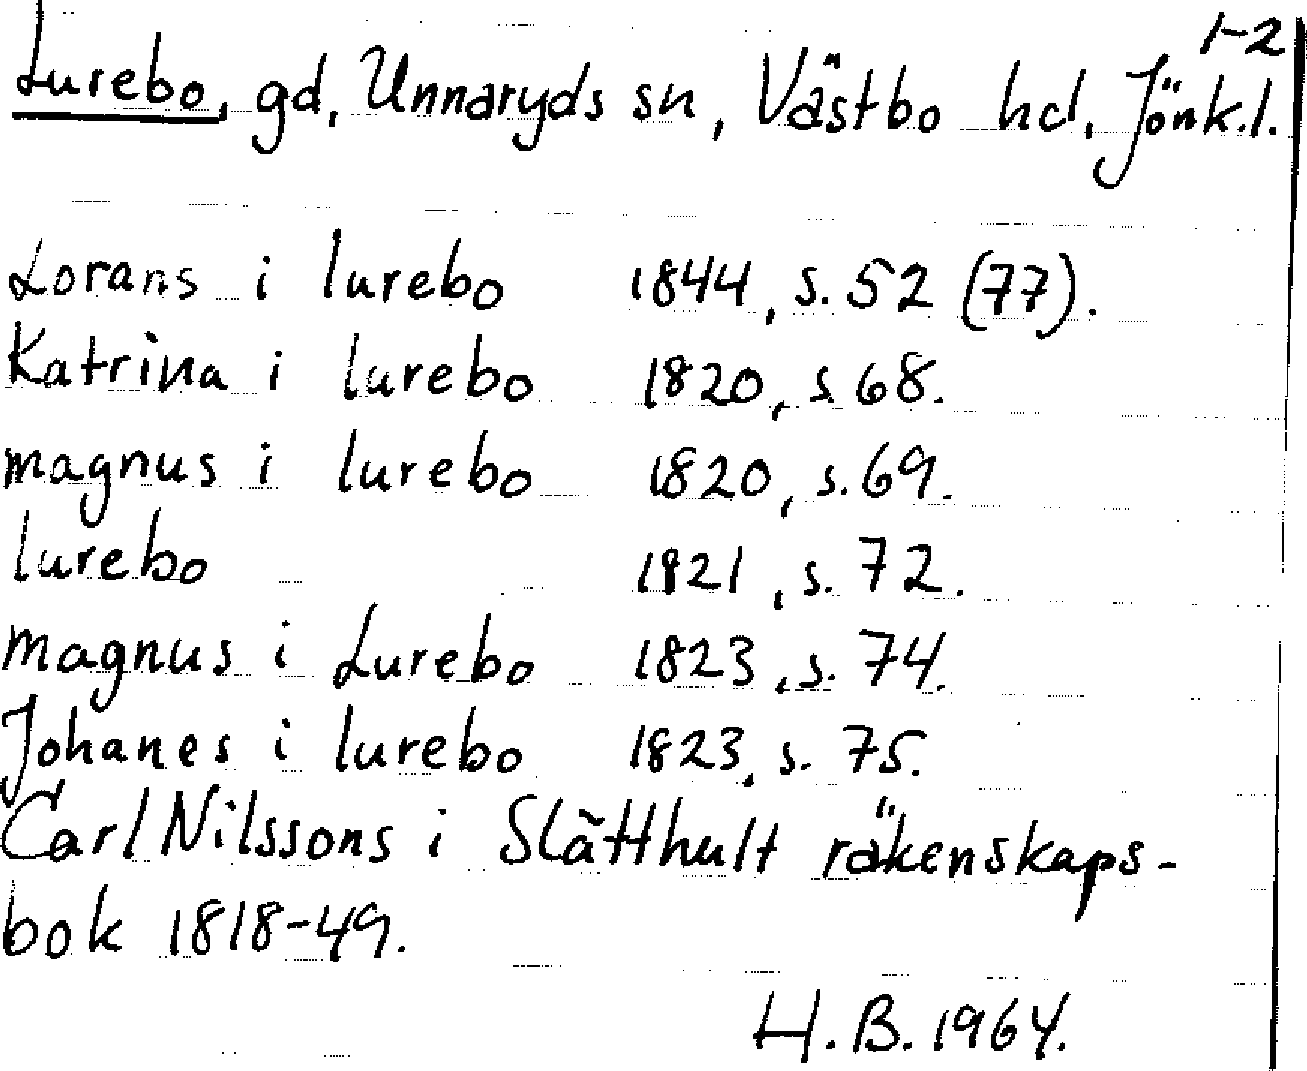 1-2
Lurebo, gd, Unnaryds sn, Västbo hd, Jönk.l.
Lorans i lurebo 1844, s. 52 (77).
Katrina i lurebo 1820, s 68.
magnus i lurebo 1820, s. 69.
lurebo 1821, s. 72.
magnus i Lurebo 1823, s. 74.
Johanes i lurebo 1823, s. 75.
Carl Nilssons i Slätthult räkenskaps-
bok 1818-49.
H.B. 1964.